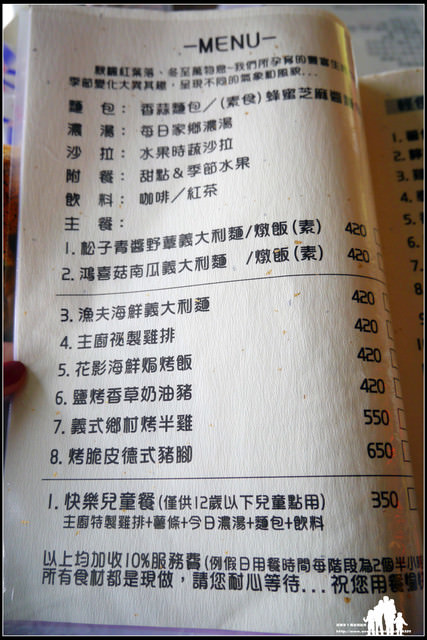 —MENU—
觀楓紅葉落、冬至萬物息~我們所孕育的豐富生
季節變化大異其趣,呈現不同的氣象和風貌...
麵 包: 香蒜麵包／(素食)蜂蜜芝麻醬
濃 湯: 每日家鄉濃湯
沙 拉: 水果時蔬沙拉
附 餐: 甜點&季節水果
飲 料: 咖啡／紅茶
主 餐:
1. 松子青醬野蕈義大利麵/燉飯(素) 420
2. 鴻喜菇南瓜義大利麵 /燉飯(素) 420
3. 漁夫海鮮義大利麵 420
4. 主廚祕製雞排 420
5. 花影海鮮焗烤飯 420
6. 鹽烤香草奶油豬 420
7. 義式鄉村烤半雞 550
8. 烤脆皮德式豬腳 650
1. 快樂兒童餐(僅供12歲以下兒童點用) 350
主廚特製雞排+薯條+今日濃湯+麵包+飲料
以上均加收10%服務費(例假日用餐時間每階段為2個半小
所有食材都是現做,請您耐心等待...祝您用餐愉